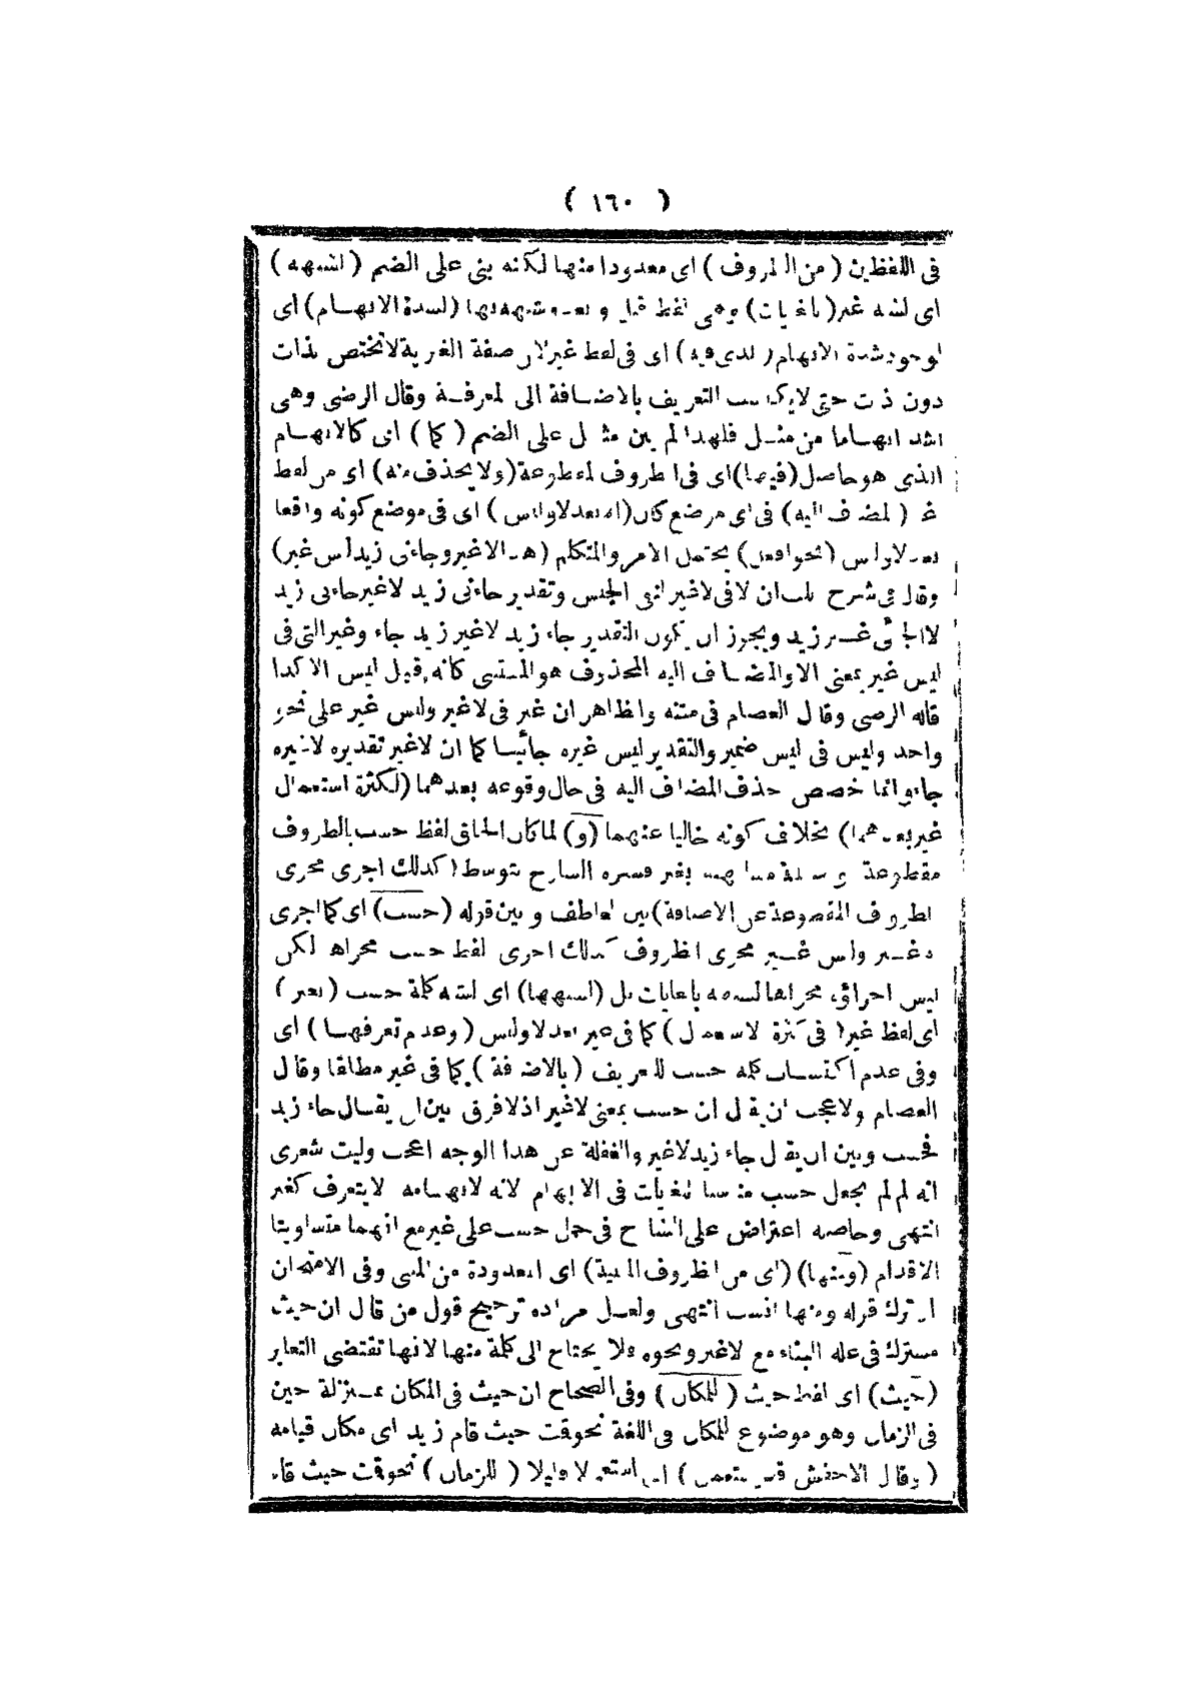 ( ١٦٠ )
فى اللفظين ( من الظروف ) اى معدودا منها لكنه بنى على الضم ( لشبهه )
اى لشبه غير ( بالغايات ) وهى لفظ قبل و بعد وشبهه بها ( لشدة الابهام ) اى
لوجود شدة الابهام ( الذى فيه ) اى فى لفظ غير لان صفة الغيرية لا تختص بذات
دون ذات حتى لا يكتسب التعريف بالاضافة الى المعرفة وقال الرضى وهى
اشد ابهاما من مثل فلهذا لم يبن مثل على الضم ( كما ) اى كالابهام
الذى هو حاصل ( فيها ) اى فى الظروف المقطوعة ( ولا يحذف منه ) اى من لفظ
غير ( المضاف اليه ) فى اى موضع كان ( الا بعد لا وليس ) اى فى موضع كونه واقعا
بعد لا وليس ( نحو افعل ) يحتمل الامر والمتكلم ( هذا لا غير وجاءنى زيد ليس غير )
وقال فى شرح اللب ان لا فى لا غير لنفى الجنس وتقدير جاءنى زيد لا غير جاءنى زيد
لا الجائى غير زيد ويجوز ان يكون التقدير جاء زيد لا غير زيد جاء وغير التى فى
ليس غير بمعنى الا والمضاف اليه المحذوف هو المستثنى كانه قيل ليس الا كذا
قاله الرضى وقال العصام فى متنه والظاهر ان غير فى لا غير وليس غير على نحو
واحد وليس فى ليس ضمير والتقدير ليس غيره جائيا كما ان لا غير تقديره لا غيره
جاء وانما خصص حذف المضاف اليه فى حال وقوعه بعدهما ( لكثرة استعمال
غير بعدهما ) بخلاف كونه خاليا عنهما ( و ) لما كان الحاق لفظ حسب بالظروف
مقطوعة بغير فسره الشارح بتوسط ( كذلك اجرى مجرى
الظروف المقطوعة عن الاضافة ) بين العاطف و بين قوله ( حسب ) اى كما اجرى
لا غير وليس غير مجرى الظروف كذلك اجرى لفظ حسب مجراها لكن
ليس اجراؤه مجراها لشبهه بالغايات بل ( لشبهها ) اى لشبه كلمة حسب ( بغير )
اى لفظ غير ( فى كثرة الاستعمال ) كما فى غير بعد لا وليس ( وعدم تعرفها ) اى
وفى عدم اكتساب كلمة حسب للتعريف ( بالاضافة ) كما فى غير مطلقا وقال
العصام ولا عجب ان يقال ان حسب بمعنى لا غير اذ لا فرق بين ان يقال جاء زيد
فحسب وبين ان يقال جاء زيد لا غير والغفلة عن هذا الوجه اعجب وليت شعرى
انه لم لم يجعل حسب مشابها للغايات فى الابهام لانه لابهامه لا يتعرف كغير
انتهى وحاصله اعتراض على الشارح فى حمل حسب على غير مع انهما متساويتا
الاقدام ( ومنها ) ( اى من الظروف المبنية ) اى المعدودة من المبنى وفى الامتحان
ان ترك قوله ومنها انسب انتهى ولعل مراده ترجيح قول من قال ان حيث
مشترك فى علة البناء مع لا غير ونحوه فلا يحتاج الى كلمة منها لانها تقتضى التغاير
( حيث ) اى لفظ حيث ( للمكان ) وفى الصحاح ان حيث فى المكان بمنزلة حين
فى الزمان وهو موضوع للمكان فى اللغة نحو قمت حيث قام زيد اى مكان قيامه
( وقال الاخفش قد يستعمل ) اى استعمالا قليلا ( للزمان ) نحو قمت حيث قام